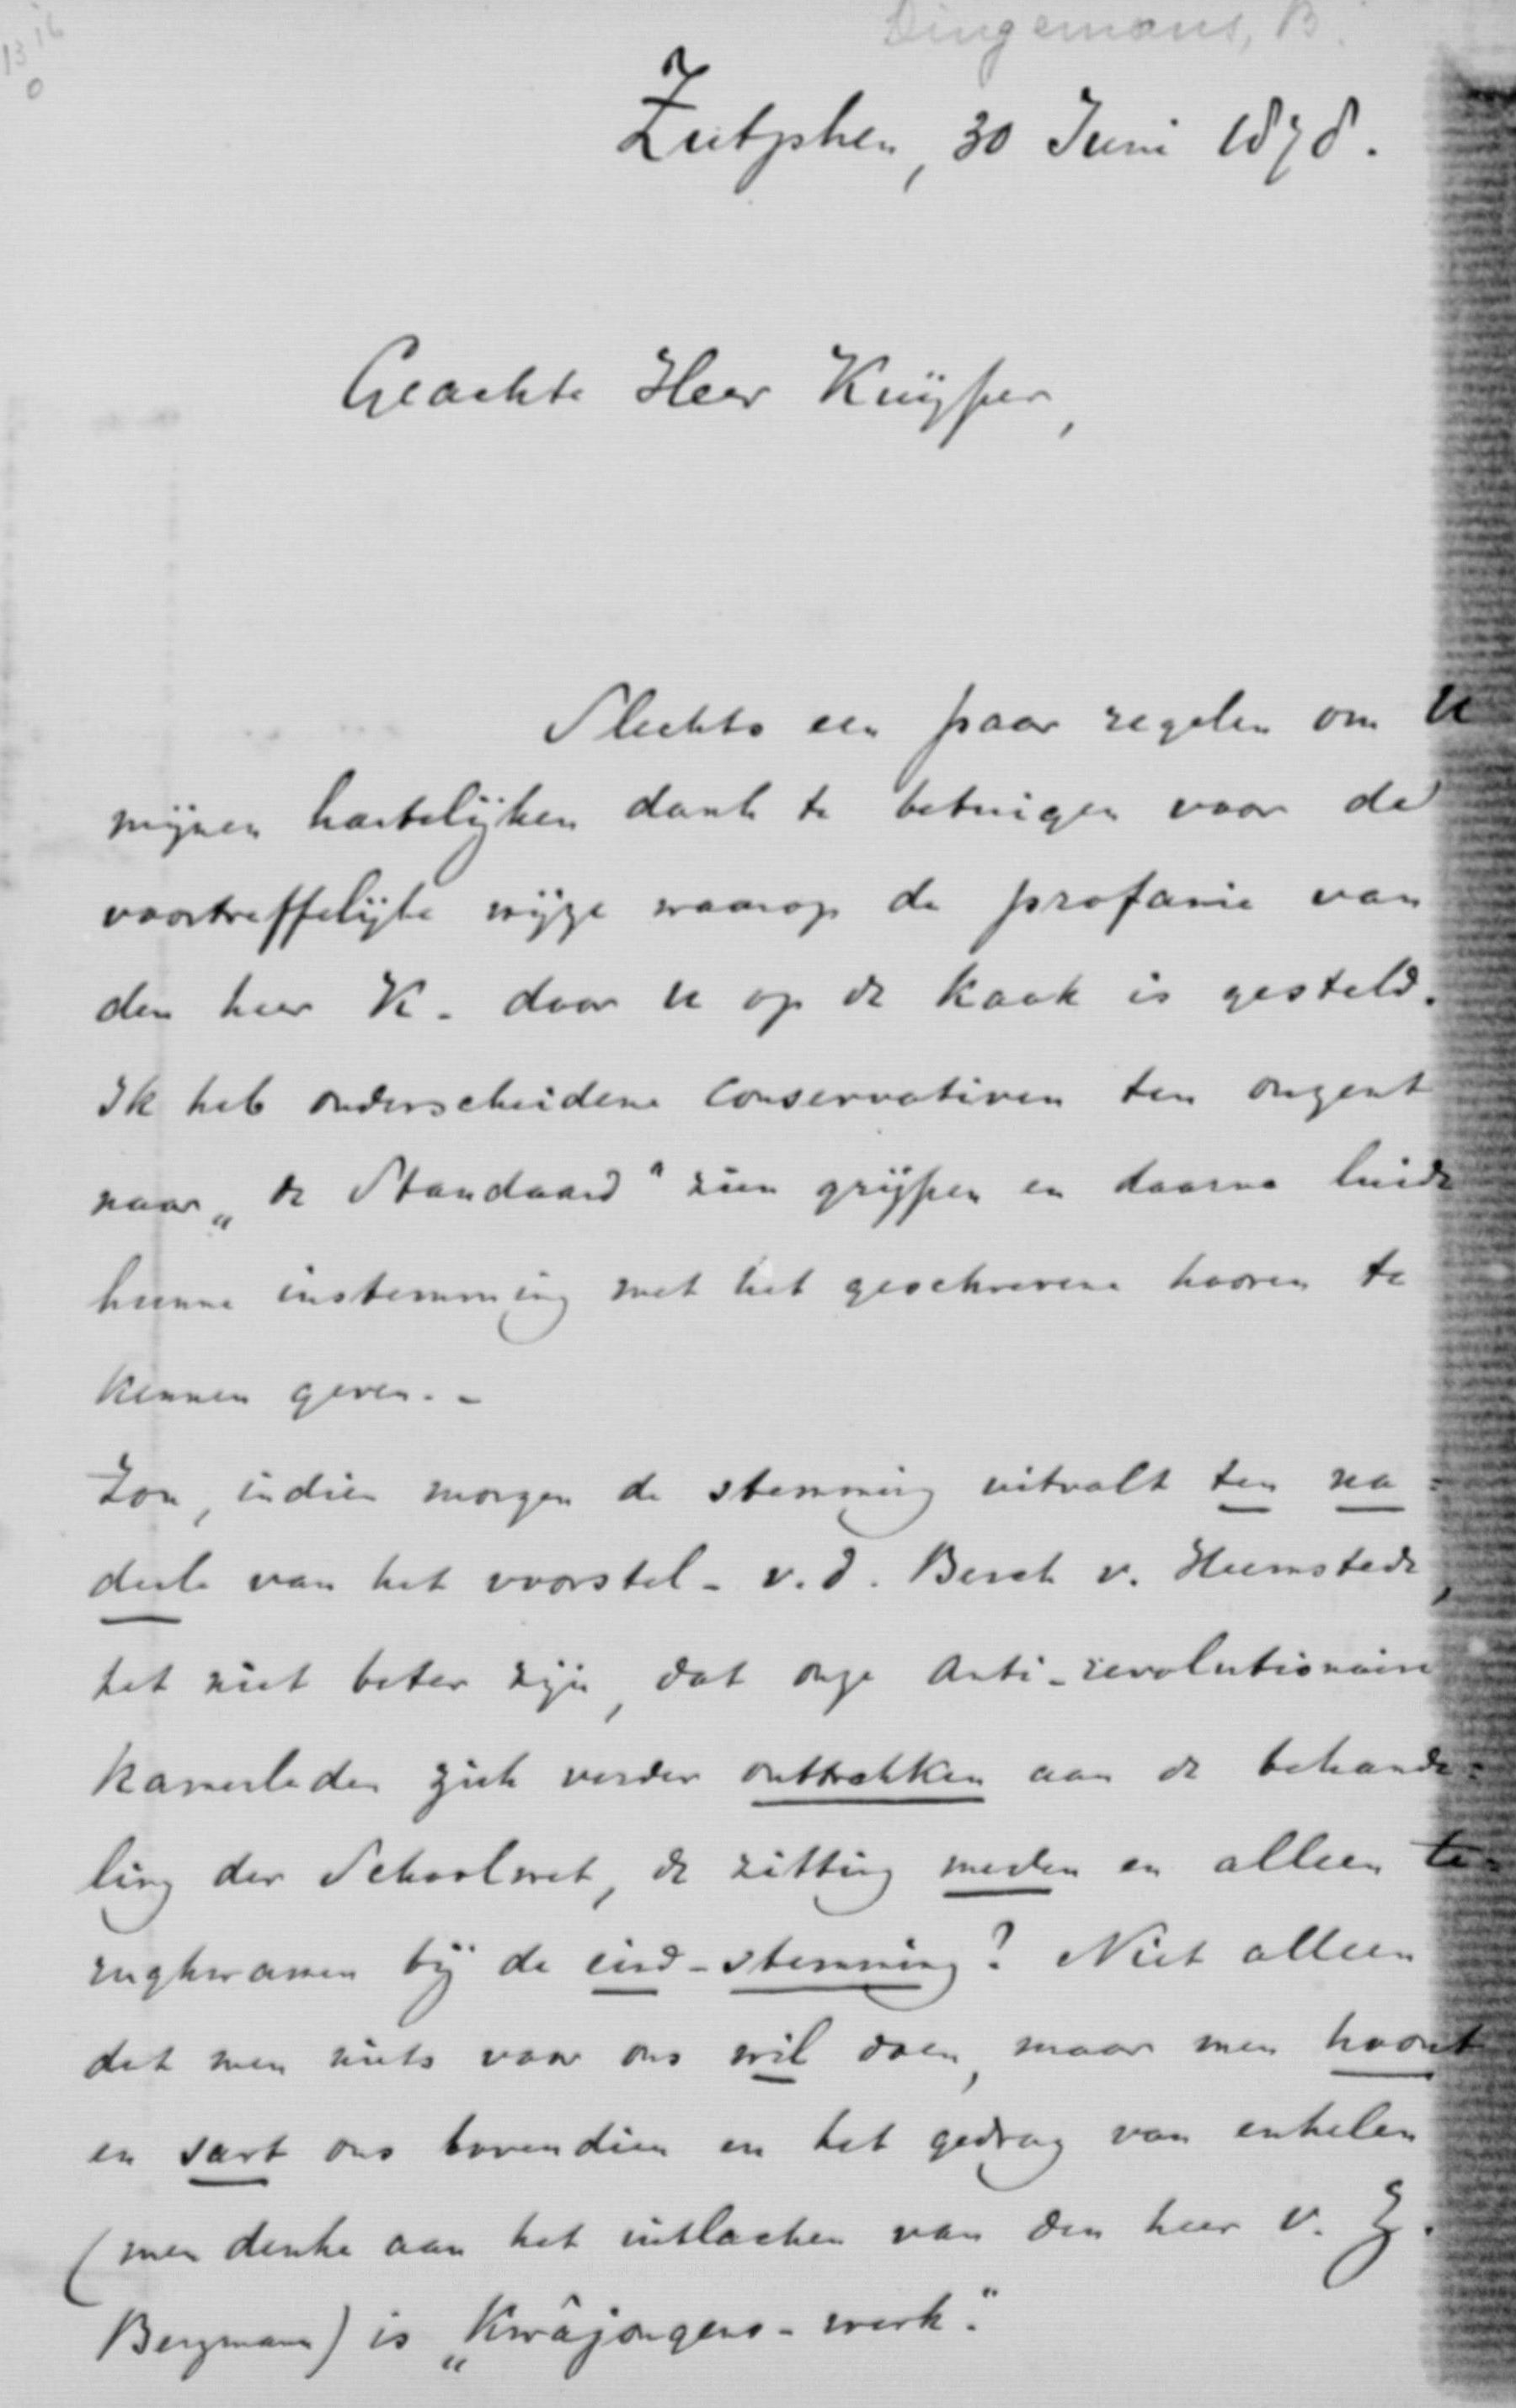 Dingemans, B.
1316
0
Zutphen, 30 Juni 1878.
Geachte Heer Kuijper,
Slechts een paar regelen om U
mijnen hartelijken dank te betuigen voor de
voortreffelijke wijze waarop de profanie van
den heer K. door U op de kaak is gesteld.
Ik heb onderscheidene Conservatieven ten onzent
naar „de Standaard" zien grijpen en daarna luide
hunne instemming met het geschrevene hooren te
kennen geven. -
Zou, indien morgen de stemming uitvalt ten na=
deele van het voorstel - v. d. Berch v. Heemstede,
het niet beter zijn, dat onze Anti-revolutionaire
kamerleden zich verder onttrokken aan de behande=
ling der Schoolwet, de zitting meden en alleen te=
rugkwamen bij de eind-stemming? Niet alleen
dat men niets voor ons wil doen, maar men hoont
en sart ons bovendien en het gedrag van enkelen
(men denke aan het uitlachen van den heer v. Z.
Bergmann) is „Kwâjongens-werk".